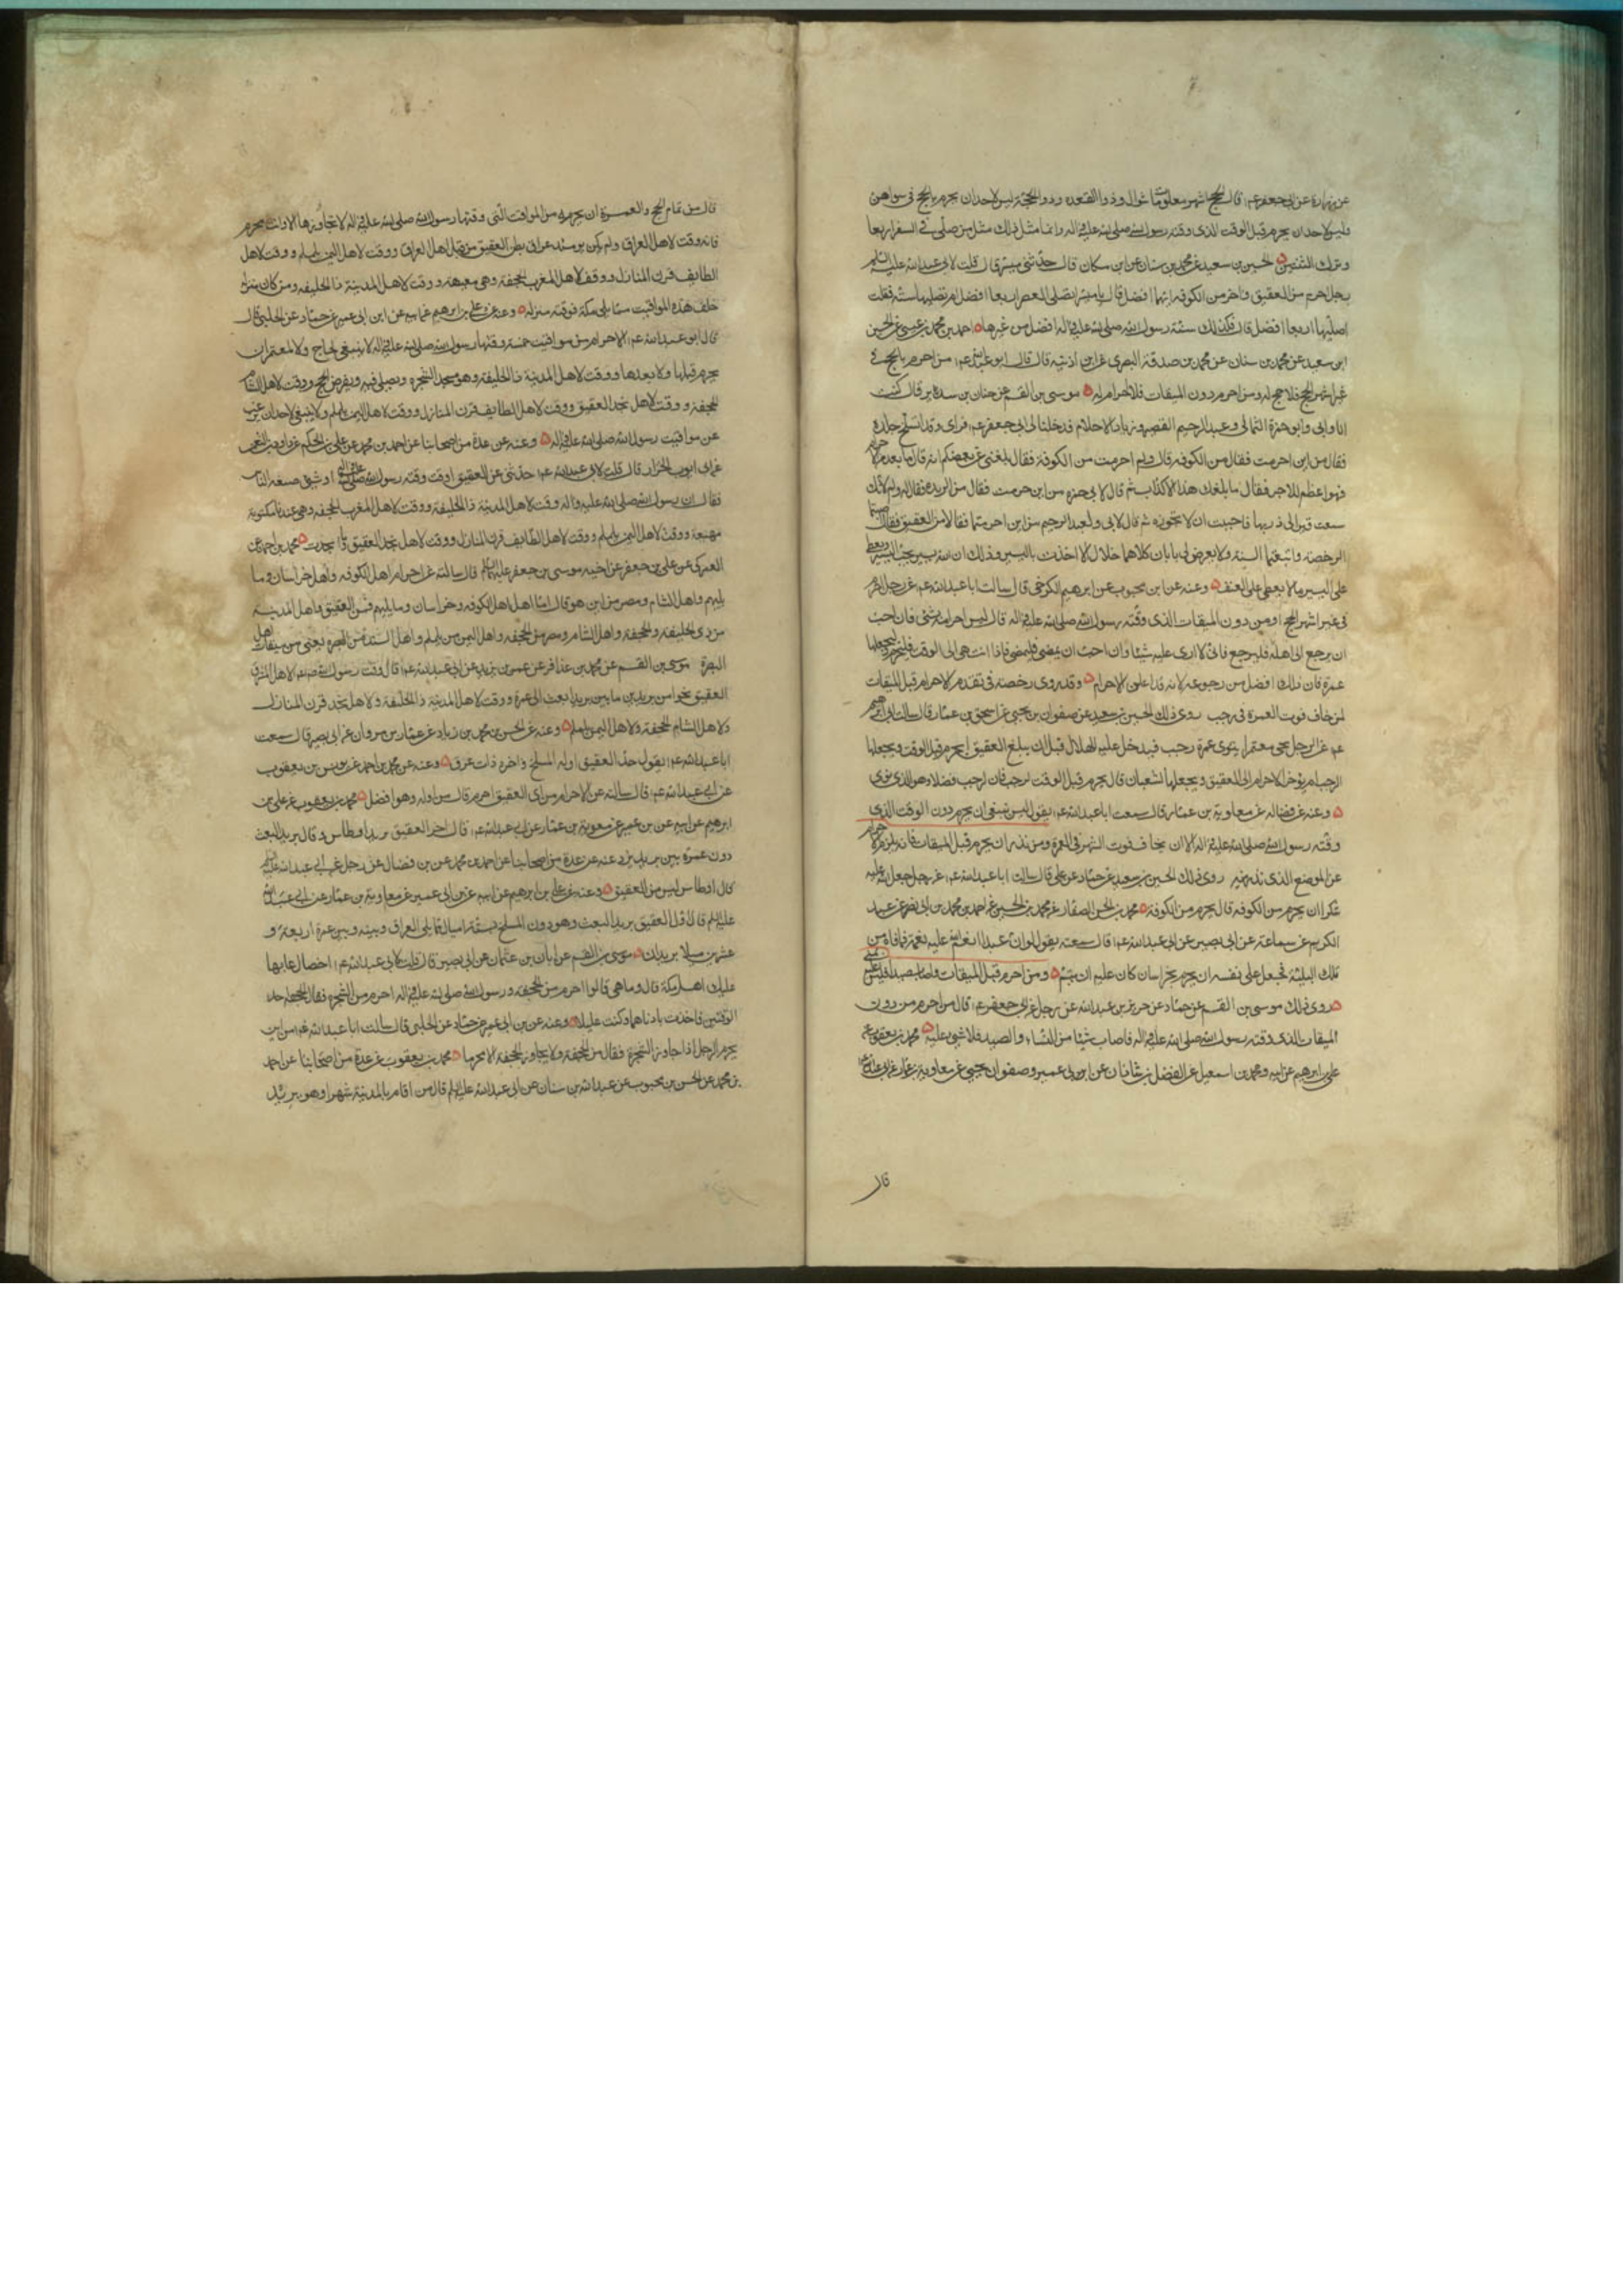 عن زرارة عن ابى جعفر عم قال الحج اشهر معلومات شوال وذوا القعده وذو الحجة ليس لاحد ان يحرم بالحج فى سواهن
وليس لاحد ان يحرم قبل الوقت الذى وقته رسول الله صلى الله عليه واله وانما مثل ذلك مثل من صلى فى السفر اربعا
وترك الثنتين الحسين بن سعيد عن محمد بن سنان عن ابن مسكان قال حدثنى ميسر قال قلت لابى عبد الله عليه السلم
رجل احرم من العقيق واخر من الكوفه ايهما افضل قال يا ميسر اتصلى العصر اربعا افضل ام تصليها ستة فقلت
اصليها اربعا افضل قال فكذلك سنة رسول الله صلى الله عليه واله افضل من غيرها احمد بن محمد بن عيسى عن الحسين
ابن سعيد عن محمد بن سنان عن محمد بن صدقة البصرى عن ابن اذينه قال قال ابو عبد الله عم من احرم بالحج فى
غير اشهر الحج فلا حج له ومن احرم دون الميقات فلا احرام له موسى بن القسم عن حنان بن سدير قال كنت
انا وابى وابو حمزة الثمالى وعبد الرحيم القصير وزياد الاحلام فدخلنا الى ابى جعفر عم فراى زيادا تسلخ جلده
فقال من اين احرمت فقال من الكوفه قال ولم احرمت من الكوفة فقال بلغنى عن بعضكم انه قال ما بعد من الاحرام
فهو اعظم للاجر فقال ما بلغك هذا الا كذاب ثم قال لابى حمزه من اين احرمت فقال من الربذه فقال له ولم لانك
سمعت ان قبر ابى ذر بها فاحببت ان لا تجوزه ثم قال لابى ولعبد الرحيم من اين احرمتما فقالا من العقيق فقال اصبتما
الرخصة واتبعتما السنة ولا يعرض لى بابان كلاهما حلال الا اخذت باليسير وذلك ان الله يسير يحب اليسير ويعطى
على اليسير ما لا يعطى على العنف وعنه عن ابن محبوب عن ابرهيم الكرخى قال سالت ابا عبد الله عم عن رجل احرم
فى غير اشهر الحج ومن دون الميقات الذى وقته رسول الله صلى الله عليه واله قال ليس احرامه بشئ فان احب
ان يرجع الى اهله فليرجع فانى لا ارى عليه شيئا وان احب ان يمضى فليمض فاذا انتهى الى الوقت فليحرم وليجعلها
عمرة فان ذلك افضل من رجوعه لانه قد اعلن الاحرام وقد روى رخصه فى تقدم الاحرام قبل الميقات
لمن خاف فوت العمرة فى رجب روى ذلك الحسين بن سعيد عن صفوان بن يحيى عن اسحق بن عمار قال سالت ابا ابرهيم
عم عن الرجل يجى معتمرا ينوى عمرة رجب فيدخل عليه الهلال قبل ان يبلغ العقيق ايحرم قبل الوقت ويجعلها
لرجب ام يؤخر الاحرام الى العقيق ويجعلها لشعبان قال يحرم قبل الوقت لرجب فان لرجب فضلا وهو الذى نوى
وعنه عن فضاله عن معاوية بن عمار قال سمعت ابا عبد الله عم يقول ليس ينبغى ان يحرم دون الوقت الذى
وقته رسول الله صلى الله عليه واله الا ان يخاف فوت الشهر فى العمرة ومن نذر ان يحرم قبل الميقات فانه يلزمه الاحرام
عن الموضع الذى نذر فيه روى ذلك الحسين بن سعيد عن حماد عن على قال سالت ابا عبد الله عم عن رجل جعل لله عليه
شكرا ان يحرم من الكوفه قال يحرم من الكوفة محمد بن الحسن الصفار عن محمد بن الحسين عن احمد بن محمد بن ابى نصر عن عبد
الكريم عن سماعة عن ابى بصير عن ابى عبد الله عم قال سمعته يقول لو ان عبدا انعم الله عليه نعمة فعافاه من
تلك البلية فجعل على نفسه ان يحرم بخراسان كان عليه ان يتم ومن احرم قبل الميقات واصاب صيدا فليس عليه شئ
روى ذلك موسى بن القسم عن حماد عن حريز بن عبد الله عن رجل عن ابى جعفر عم قال من احرم من دون
الميقات الذى وقته رسول الله صلى الله عليه واله فاصاب شيئا من النساء والصيد فلا شئ عليه محمد بن يعقوب عن
على بن ابرهيم عن ابيه ومحمد بن اسمعيل عن الفضل بن شاذان عن ابن ابى عمير وصفوان بن يحيى عن معاوية بن عمار عن ابى عبد الله عم
قال
قال من تمام الحج والعمرة ان يحرم من المواقيت التى وقتها رسول الله صلى الله عليه واله لا تجاوزها الا وانت محرم
فانه وقت لاهل العراق ولم يكن يومئذ عراق بطن العقيق من قبل اهل العراق ووقت لاهل اليمن يلملم ووقت لاهل
الطايف قرن المنازل ووقت لاهل المغرب الجحفة وهى مهيعة ووقت لاهل المدينة ذا الحليفه ومن كان منزله
خلف هذه المواقيت مما يلى مكة فوقته منزله وعنه عن على بن ابرهيم عن ابيه عن ابن ابى عمير عن حماد عن الحلبى قال
قال ابو عبد الله عم الاحرام من مواقيت خمسة وقتها رسول الله صلى الله عليه واله لا ينبغى لحاج ولا لمعتمر ان
يحرم قبلها ولا بعدها ووقت لاهل المدينة ذا الحليفة وهو مسجد الشجرة ويصلى فيه ويفرض الحج ووقت لاهل الشام
الجحفة ووقت لاهل نجد العقيق ووقت لاهل الطايف قرن المنازل ووقت لاهل اليمن يلملم ولا ينبغى لاحد ان يرغب
عن مواقيت رسول الله صلى الله عليه واله وعنه عن عدة من اصحابنا عن احمد بن محمد عن على بن الحكم عن داود بن النعمن
عن ابى ايوب الخزاز قال قلت لابى عبد الله عم حدثنى عن العقيق اوقت وقته رسول الله صلى الله عليه واله او شئ صنعه الناس
فقال ان رسول الله صلى الله عليه واله وقت لاهل المدينة ذا الحليفة ووقت لاهل المغرب الجحفه وهى عندنا مكتوبة
مهيعة ووقت لاهل اليمن يلملم ووقت لاهل الطايف قرن المنازل ووقت لاهل نجد العقيق وما انجدت محمد بن احمد عن
العمركى عن على بن جعفر عن اخيه موسى بن جعفر عليهما السلم قال سالته عن احرام اهل الكوفه واهل خراسان وما
يليهم واهل الشام ومصر من اين هو قال اما اهل الكوفه وخراسان وما يليهم فمن العقيق واهل المدينة
من ذى الحليفة والجحفة واهل الشام ومصر من الجحفه واهل اليمن من يلملم واهل السند من البصره يعنى من ميقات اهل
البصرة موسى بن القسم عن محمد بن عذافر عن عمر بن يزيد عن ابى عبد الله عم قال وقت رسول الله صلعم لاهل المشرق
العقيق نحوا من بريدين ما بين بريد البعث الى غمرة ووقت لاهل المدينة ذا الحليفة ولاهل نجد قرن المنازل
ولاهل الشام الجحفة ولاهل اليمن يلملم وعنه عن الحسن بن محمد عن محمد بن زياد عن عمار بن مروان عن ابى بصير قال سمعت
ابا عبد الله عم يقول حد العقيق اوله المسلخ واخره ذات عرق وعنه عن محمد بن احمد عن يونس بن يعقوب
عن ابى عبد الله عم قال سالته عن الاحرام من اى العقيق احرم قال من اوله وهو افضل محمد بن يعقوب عن على بن
ابرهيم عن ابيه عن ابن ابى عمير عن معوية بن عمار عن ابى عبد الله عم قال اخر العقيق بريد اوطاس وقال بريد البعث
دون غمرة ببريدين وعنه عن عدة من اصحابنا عن احمد بن محمد عن ابن فضال عن رجل عن ابى عبد الله عليه السلم
قال اوطاس ليس من العقيق وعنه عن على بن ابرهيم عن ابيه عن ابن ابى عمير عن معاوية بن عمار عن ابى عبد الله
عليه السلم قال اول العقيق بريد البعث وهو دون المسلخ بستة اميال مما يلى العراق وبينه وبين غمرة اربعة و
عشرين ميلا بريدان موسى بن القسم عن ابان بن عثمان عن ابى بصير قال قلت لابى عبد الله عم خصال عابها
عليك اهل مكة قال وما هى قالوا احرم من الجحفه ورسول الله صلى الله عليه واله احرم من الشجرة فقال الجحفه احد
الوقتين فاخذت بادناهما وكنت عليلا وعنه عن ابن ابى عمير عن حماد عن الحلبى قال سالت ابا عبد الله عم من اين
يحرم الرجل اذا جاوز الشجرة فقال من الجحفة ولا يجاوز الجحفة الا محرما محمد بن يعقوب عن عدة من اصحابنا عن احمد
بن محمد عن الحسن بن محبوب عن عبد الله بن سنان عن ابى عبد الله عليه السلم قال من اقام بالمدينة شهرا وهو يريد